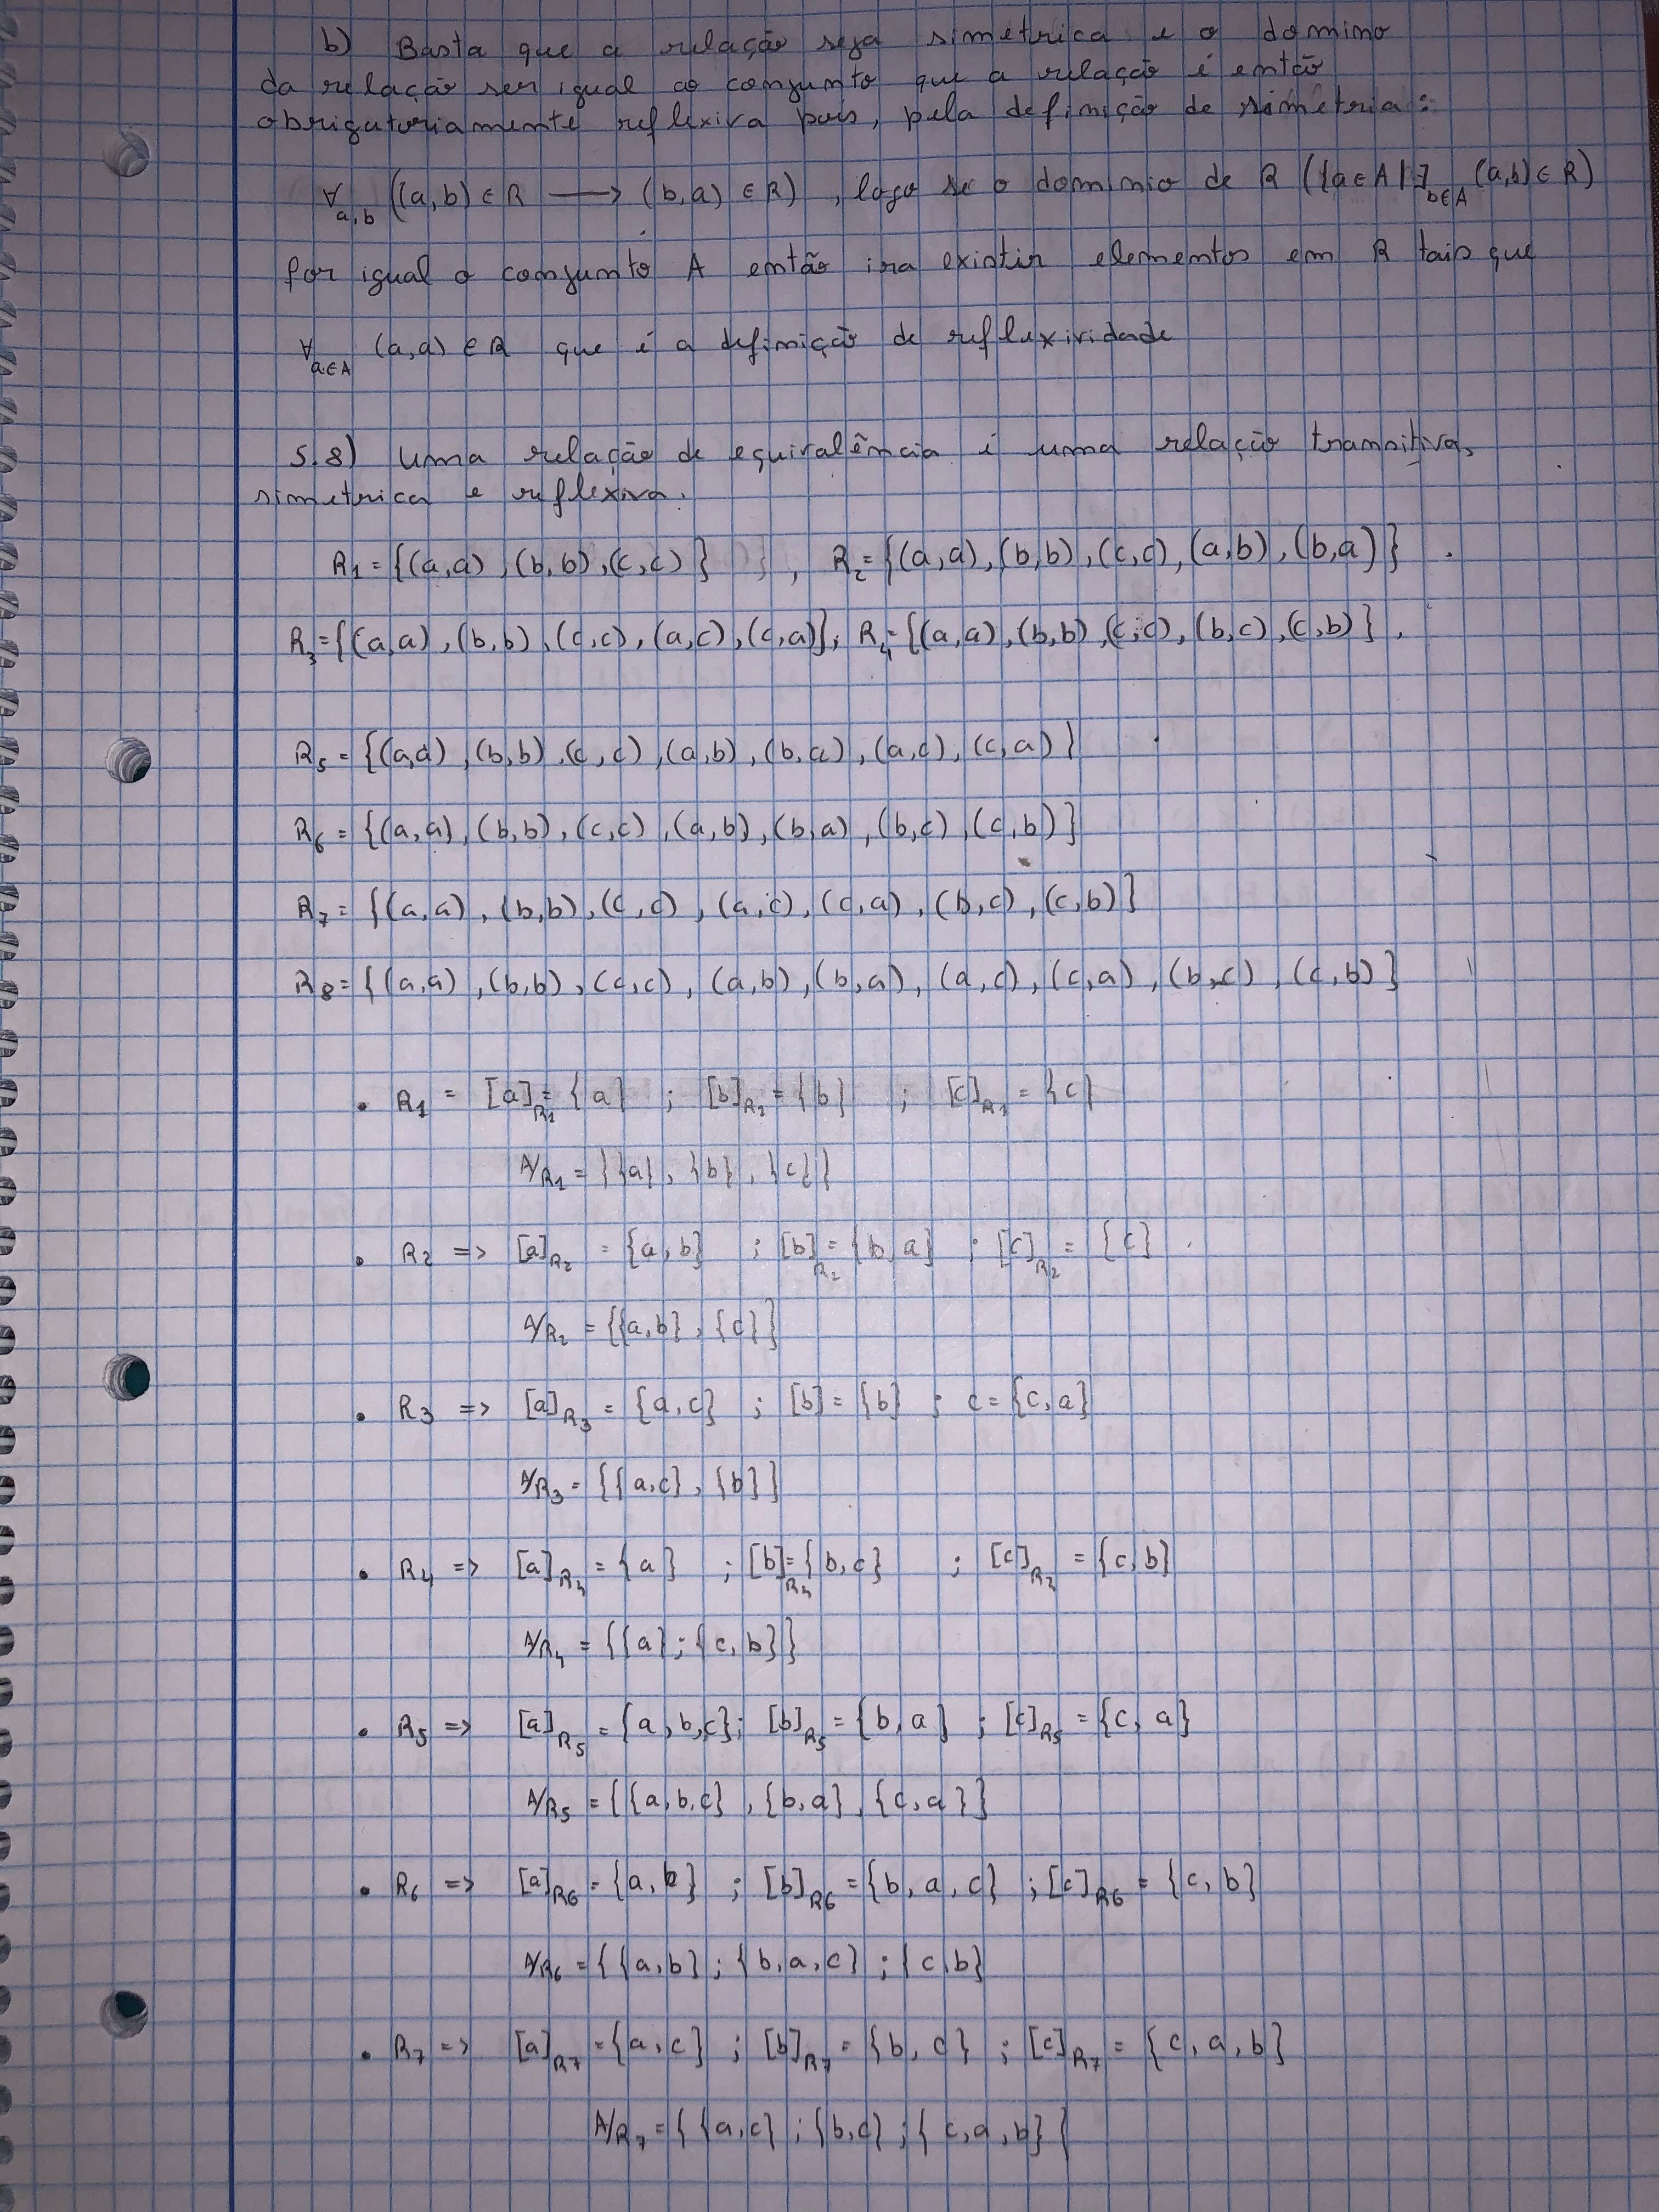 b) Basta que a relação seja simetrica e o dominio
da relação ser igual ao conjunto que a relação é então
obrigatoriamente reflexiva pois, pela definição de simetria:
∀a,b ((a,b) ∈ R ⟶ (b,a) ∈ R) , logo se o dominio de R ({a ∈ A | ∃b∈A (a,b) ∈ R)
for igual o conjunto A então ira existir elementos em R tais que
∀a∈A (a,a) ∈ R que é a definição de reflexividade
5.8) Uma relação de equivalência é uma relação transitiva,
simetrica e reflexiva.
R1 = {(a,a) , (b,b) , (c,c) } , R2 = {(a,a) , (b,b) , (c,c) , (a,b) , (b,a)} .
R3 = {(a,a) , (b,b) , (c,c) , (a,c) , (c,a)} ; R4 = {(a,a) , (b,b) , (c,c) , (b,c) , (c,b) } .
R5 = {(a,a) , (b,b) , (c,c) , (a,b) , (b,a) , (a,c) , (c,a) }
R6 = {(a,a) , (b,b) , (c,c) , (a,b) , (b,a) , (b,c) , (c,b) }
R7 = {(a,a) , (b,b) , (c,c) , (a,c) , (c,a) , (b,c) , (c,b) }
R8 = {(a,a) , (b,b) , (c,c) , (a,b) , (b,a) , (a,c) , (c,a) , (b,c) , (c,b) }
• R1 = [a]R1 = {a} ; [b]R1 = {b} ; [c]R1 = {c}
A/R1 = {{a} , {b} , {c}}
• R2 => [a]R2 = {a , b} ; [b]R2 = {b, a} ; [c]R2 = {c} .
A/R2 = {{a,b} , {c}}
• R3 => [a]R3 = {a,c} ; [b] = {b} ; c = {c,a}
A/R3 = {{a,c} , {b}}
• R4 => [a]R4 = {a} ; [b]R4 = {b,c} ; [c]R2 = {c,b}
A/R4 = {{a} ; {c,b}}
• R5 => [a]R5 = {a,b,c} ; [b]R5 = {b,a} ; [c]R5 = {c, a}
A/R5 = {{a,b,c} , {b,a} , {c,a}}
• R6 => [a]R6 = {a,b} ; [b]R6 = {b, a, c} ; [c]R6 = {c, b}
A/R6 = {{a,b} ; {b,a,c} ; {c,b}
• R7 => [a]R7 = {a,c} ; [b]R7 = {b, c} ; [c]R7 = {c, a, b}
A/R7 = {{a,c} ; {b,c} ; {c,a,b} {